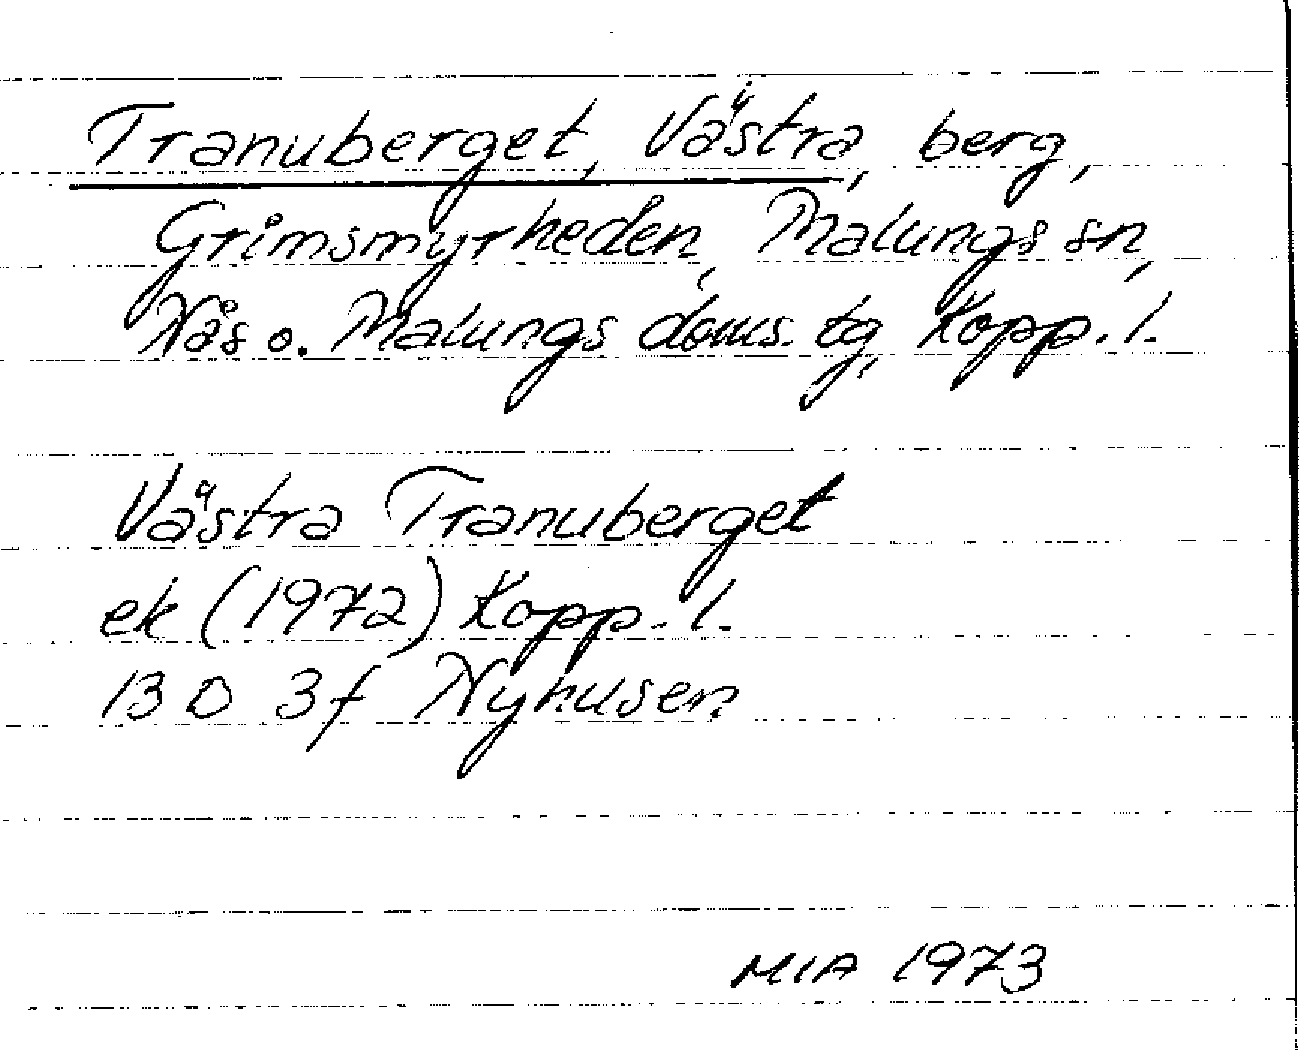 Tranuberget, Västra, berg,
Grimsmyrheden, Malungs sn,
Nås o. Malungs doms. tg, Kopp. l.
Västra Tranuberget
ek (1972) Kopp. l.
13 D 3f Nyhusen
MIA 1973